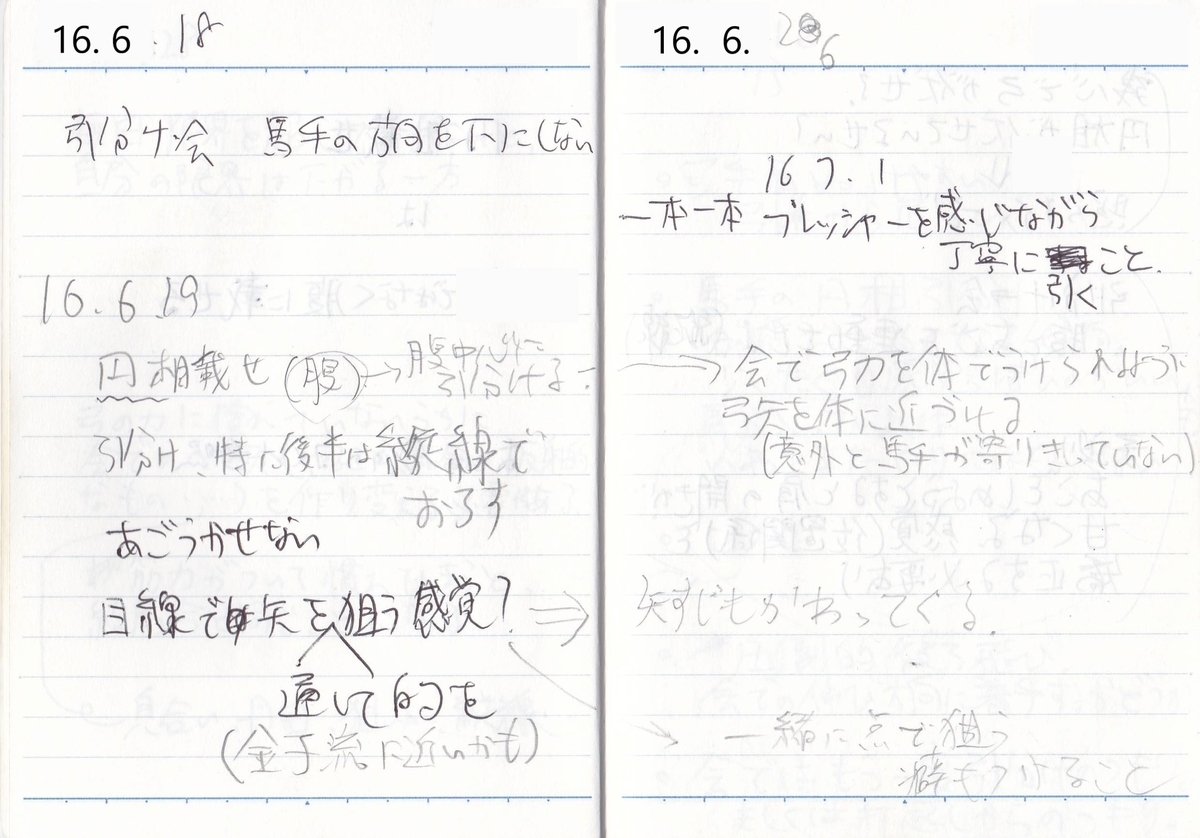 16. 6. 18
引分け、会 馬手の方向を下にしない
16. 6. 19
円相載せ (腹) → 腹中心に
引分ける
引分け、特に後半は 線で
おろす
あごうかせない
目線で 矢を狙う感覚? ⇒
通して的を
(金子流に近いかも)
16. 6. 26
16 7. 1
一本一本 プレッシャーを感じながら
丁寧に こと.
引く
→ 会で弓力を体でうけられるように
弓矢を体に近づける
(意外と馬手が寄りきっていない)
矢すじもかわってくる.
→ 一緒に点で狙う
癖もつけること